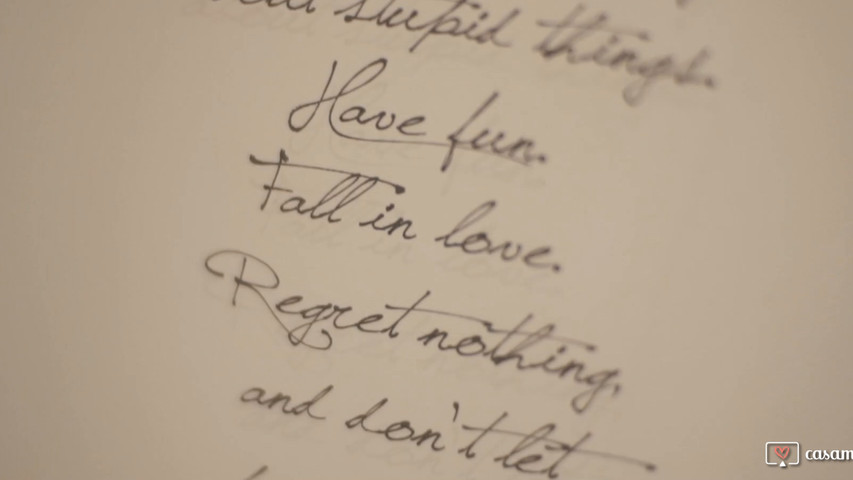 stupid things.
Have fun.
Fall in love.
Regret nothing,
and don't let
casam